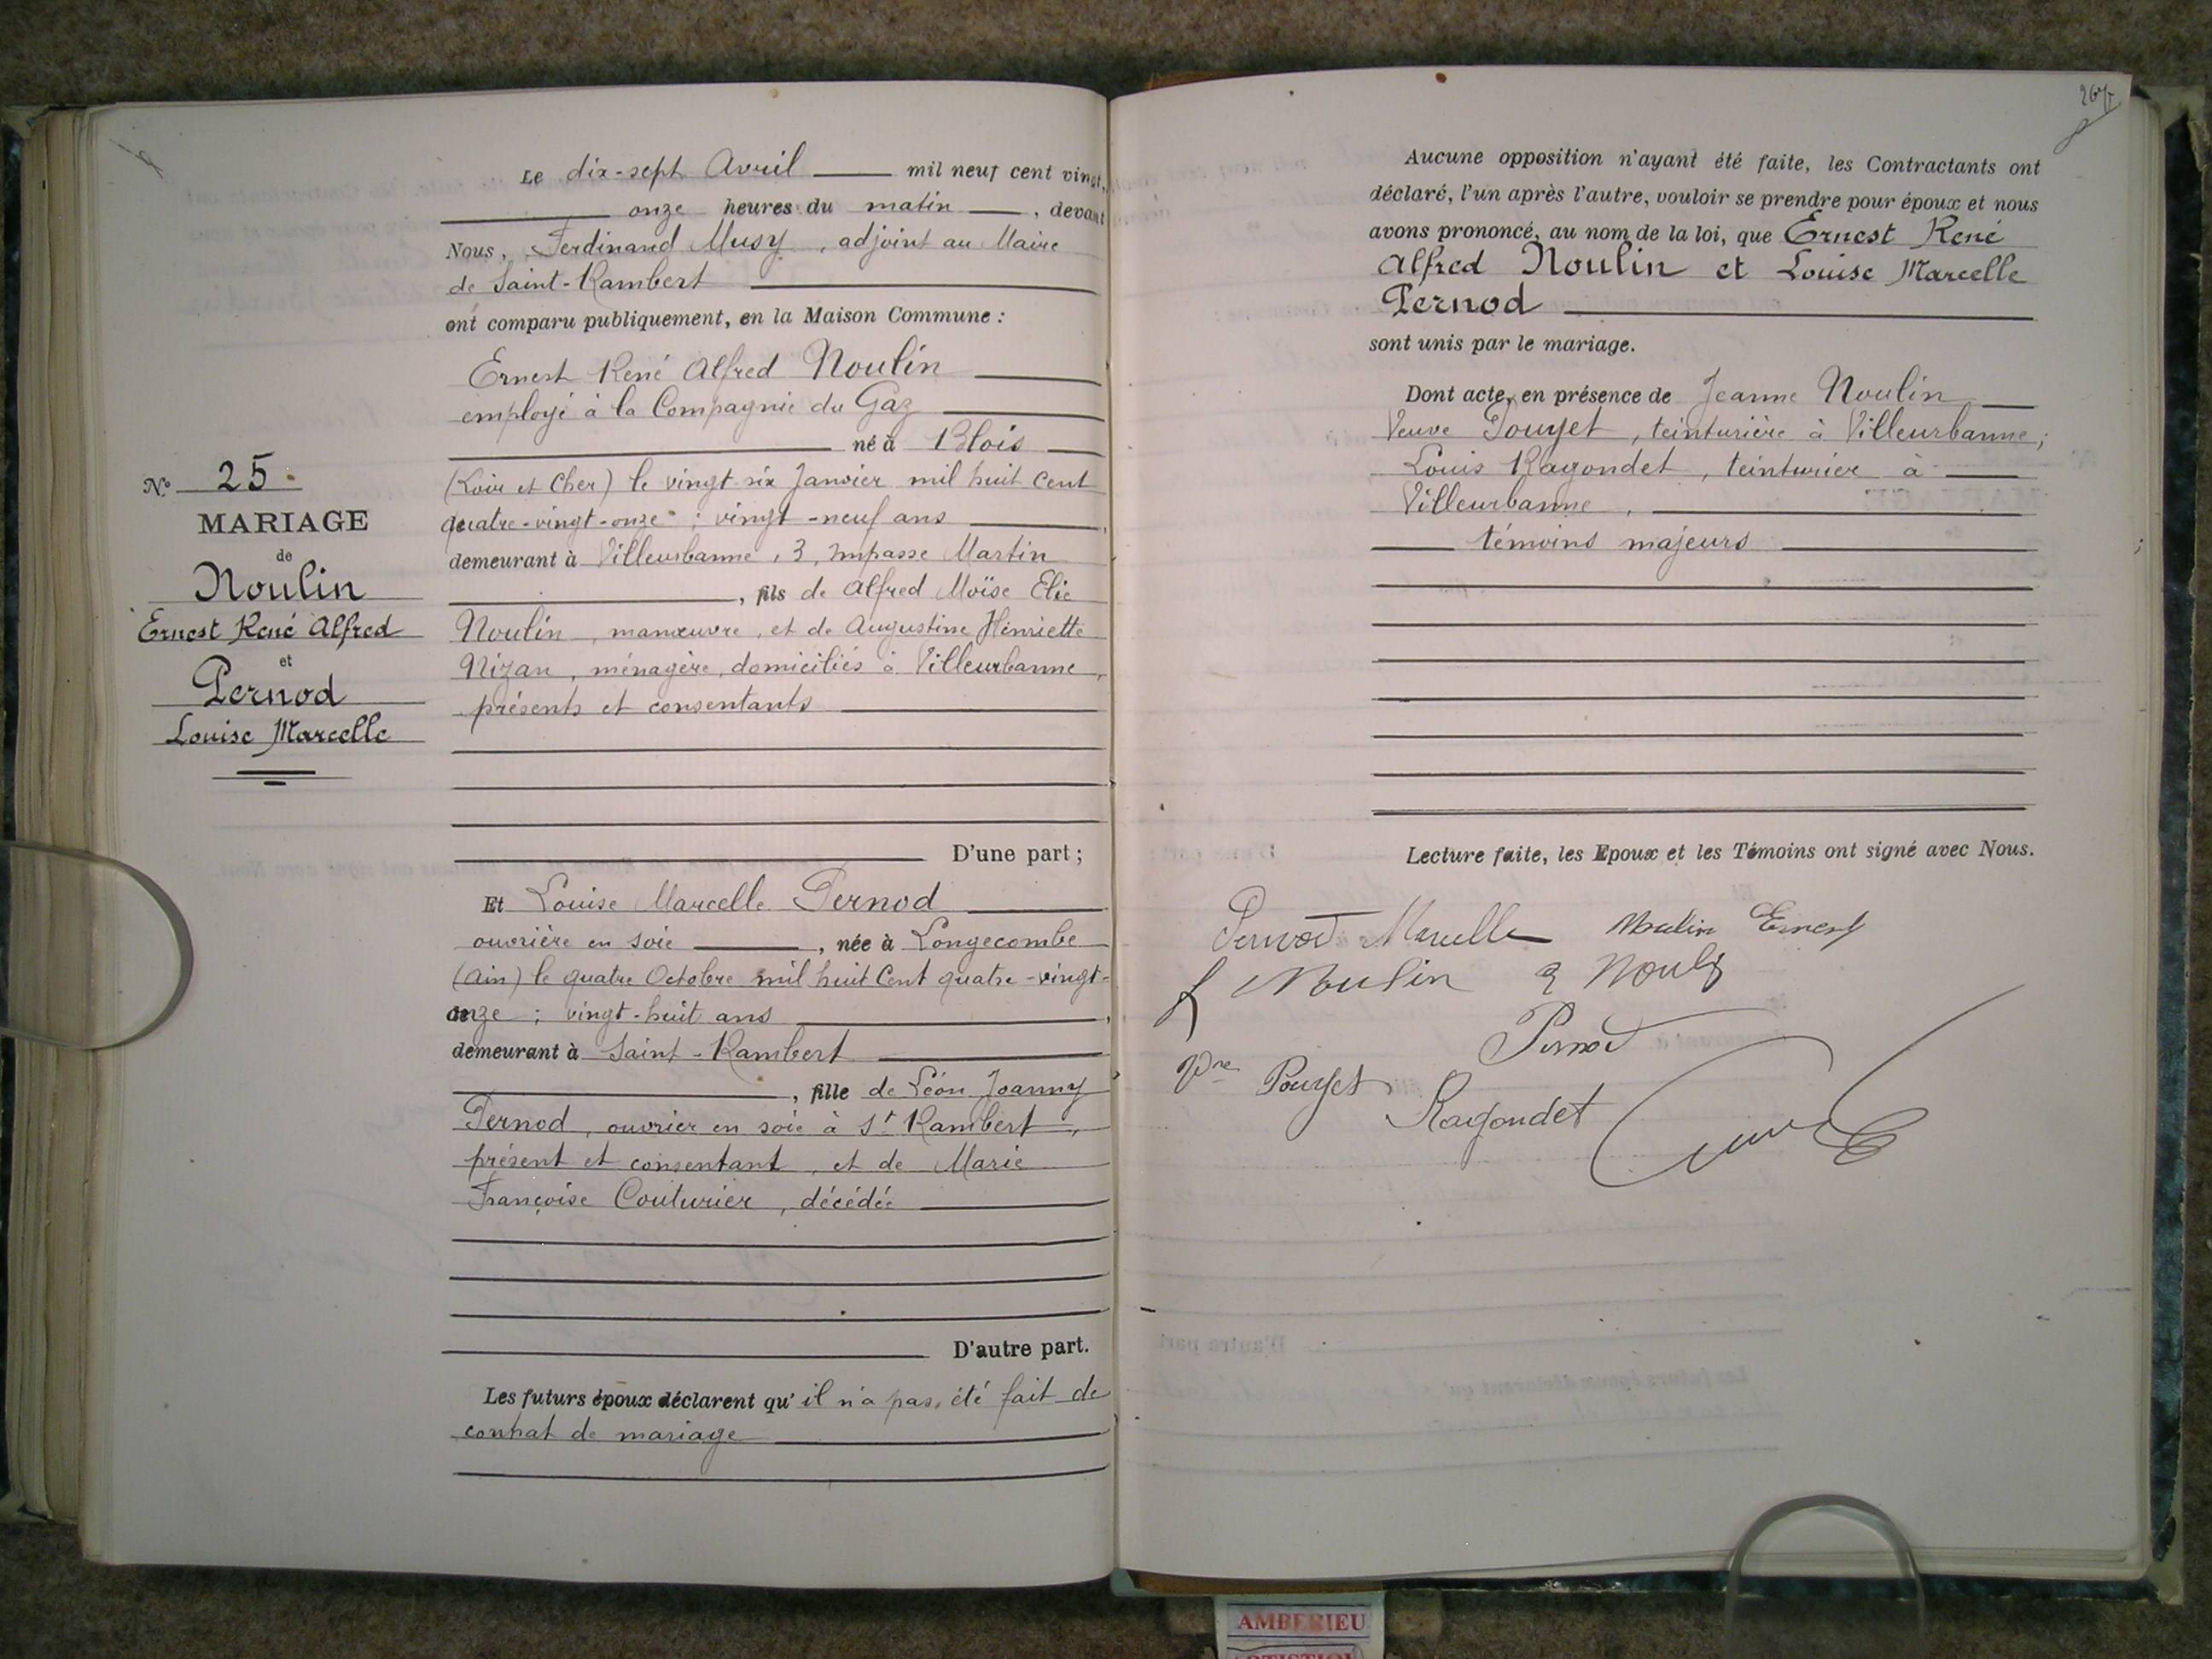 Le dix-sept Avril mil neuf cent vingt,
onze heures du matin, devant
Nous, Ferdinand Musy, adjoint au Maire
de Saint-Rambert
ont comparu publiquement, en la Maison Commune :
Ernest René Alfred Noulin
employé à la Compagnie du Gaz
né à Blois
(Loir et Cher) le vingt-six Janvier mil huit cent
quatre-vingt-onze ; vingt-neuf ans
demeurant à Villeurbanne, 3, impasse Martin
, fils de Alfred Moïse Elie
Noulin, manœuvre, et de Augustine Henriette
Nizan, ménagère, domiciliés à Villeurbanne,
présents et consentants
D'une part ;
Et Louise Marcelle Pernod
ouvrière en soie, née à Longecombe
(Ain) le quatre Octobre mil huit Cent quatre-vingt-
onze ; vingt-huit ans
demeurant à Saint-Rambert
, fille de Léon Joanny
Pernod, ouvrier en soie à St Rambert,
présent et consentant, et de Marie
Françoise Couturier, décédée
D'autre part.
Les futurs époux déclarent qu'il n'a pas été fait de
contrat de mariage
No 25
MARIAGE
de
Noulin
Ernest René Alfred
et
Pernod
Louise Marcelle
Aucune opposition n'ayant été faite, les Contractants ont
déclaré, l'un après l'autre, vouloir se prendre pour époux et nous
avons prononcé, au nom de la loi, que Ernest René
Alfred Noulin et Louise Marcelle
Pernod
sont unis par le mariage.
Dont acte, en présence de Jeanne Noulin
Veuve Pouyet, teinturière à Villeurbanne ;
Louis Ragondet, teinturier à
Villeurbanne,
témoins majeurs
Lecture faite, les Epoux et les Témoins ont signé avec Nous.
Pernod Marcelle Noulin Ernest
Noulin
Pernod
Vve Pouyet
Ragondet
AMBERIEU